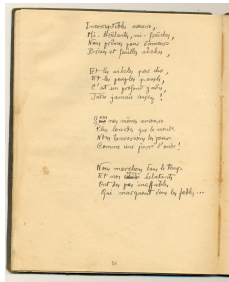 Incorruptibles
Mi-
Nous prîmes pour
Brins et feuilles sèches,
Et les siècles par dix,
Et les peuples passés,
C'est un profond jadis,
Jadis jamais assez !
Sous nos mêmes amours
Plus lourdes que le monde
Nous traversons les jours
Comme une pierre l'onde !
Nous marchons dans le temps
Et nos éclatants
Ont des pas ineffables
Qui marquent dans les fables...